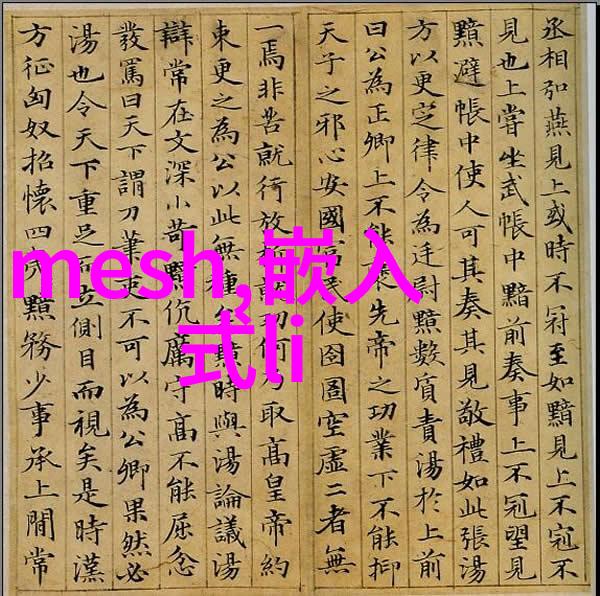 丞相弘燕見上或時不冠至如黯見上不冠不
見也上嘗坐武帳中黯前奏事上不冠望見
黯避帳中使人可其奏其見敬禮如此張湯
方以更定律令為廷尉黯數質責湯於上前
曰公為正卿上不能先帝之功業下不能抑
天子之邪心安國富民使囹圄空虛二者無
一焉非苦就行放功何乃取高皇帝約
束更之為公以此無種黯時與湯論議湯
辯常在文深小苛黯伉厲守高不能屈忿
發罵曰天下謂刀筆吏不可以為公卿果然必
湯也令天下重足而立側目而視矣是時漢
方征匈奴招懷四夷黯務少事承上間常
mesh,嵌入
式li